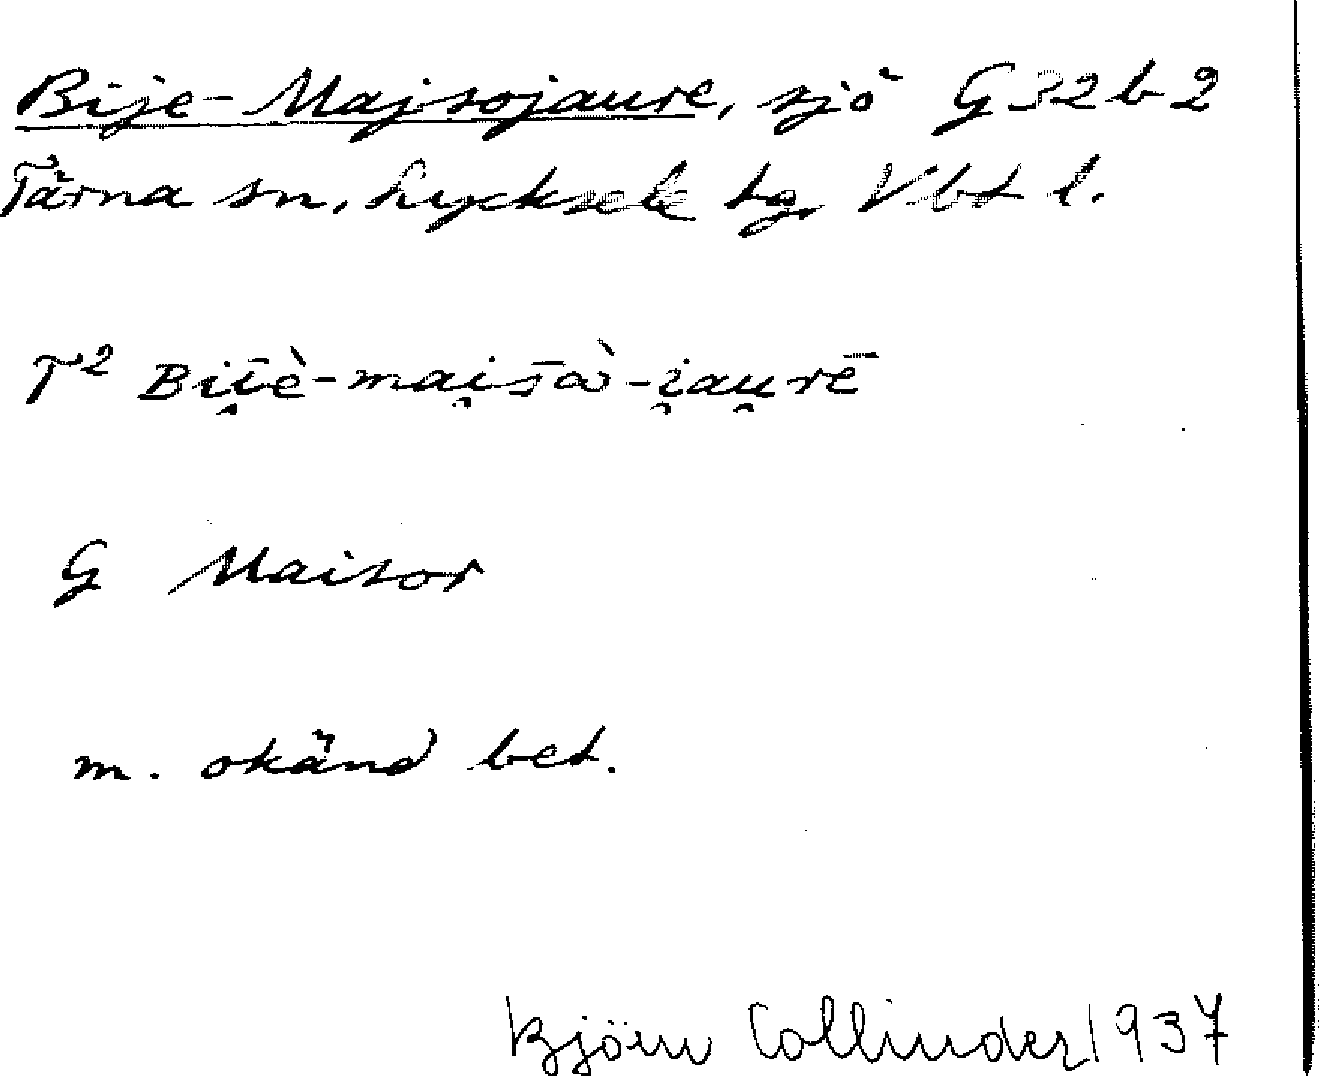 Bije-Majsojaure, sjö G32b2
Tärna sn, Lycksele tg, Vbt l.
T² Bi̯i̯è-mai̯s̄ὰ-i̯au̯rē
G Maisor
m. okänd bet.
Björn Collinder 1937